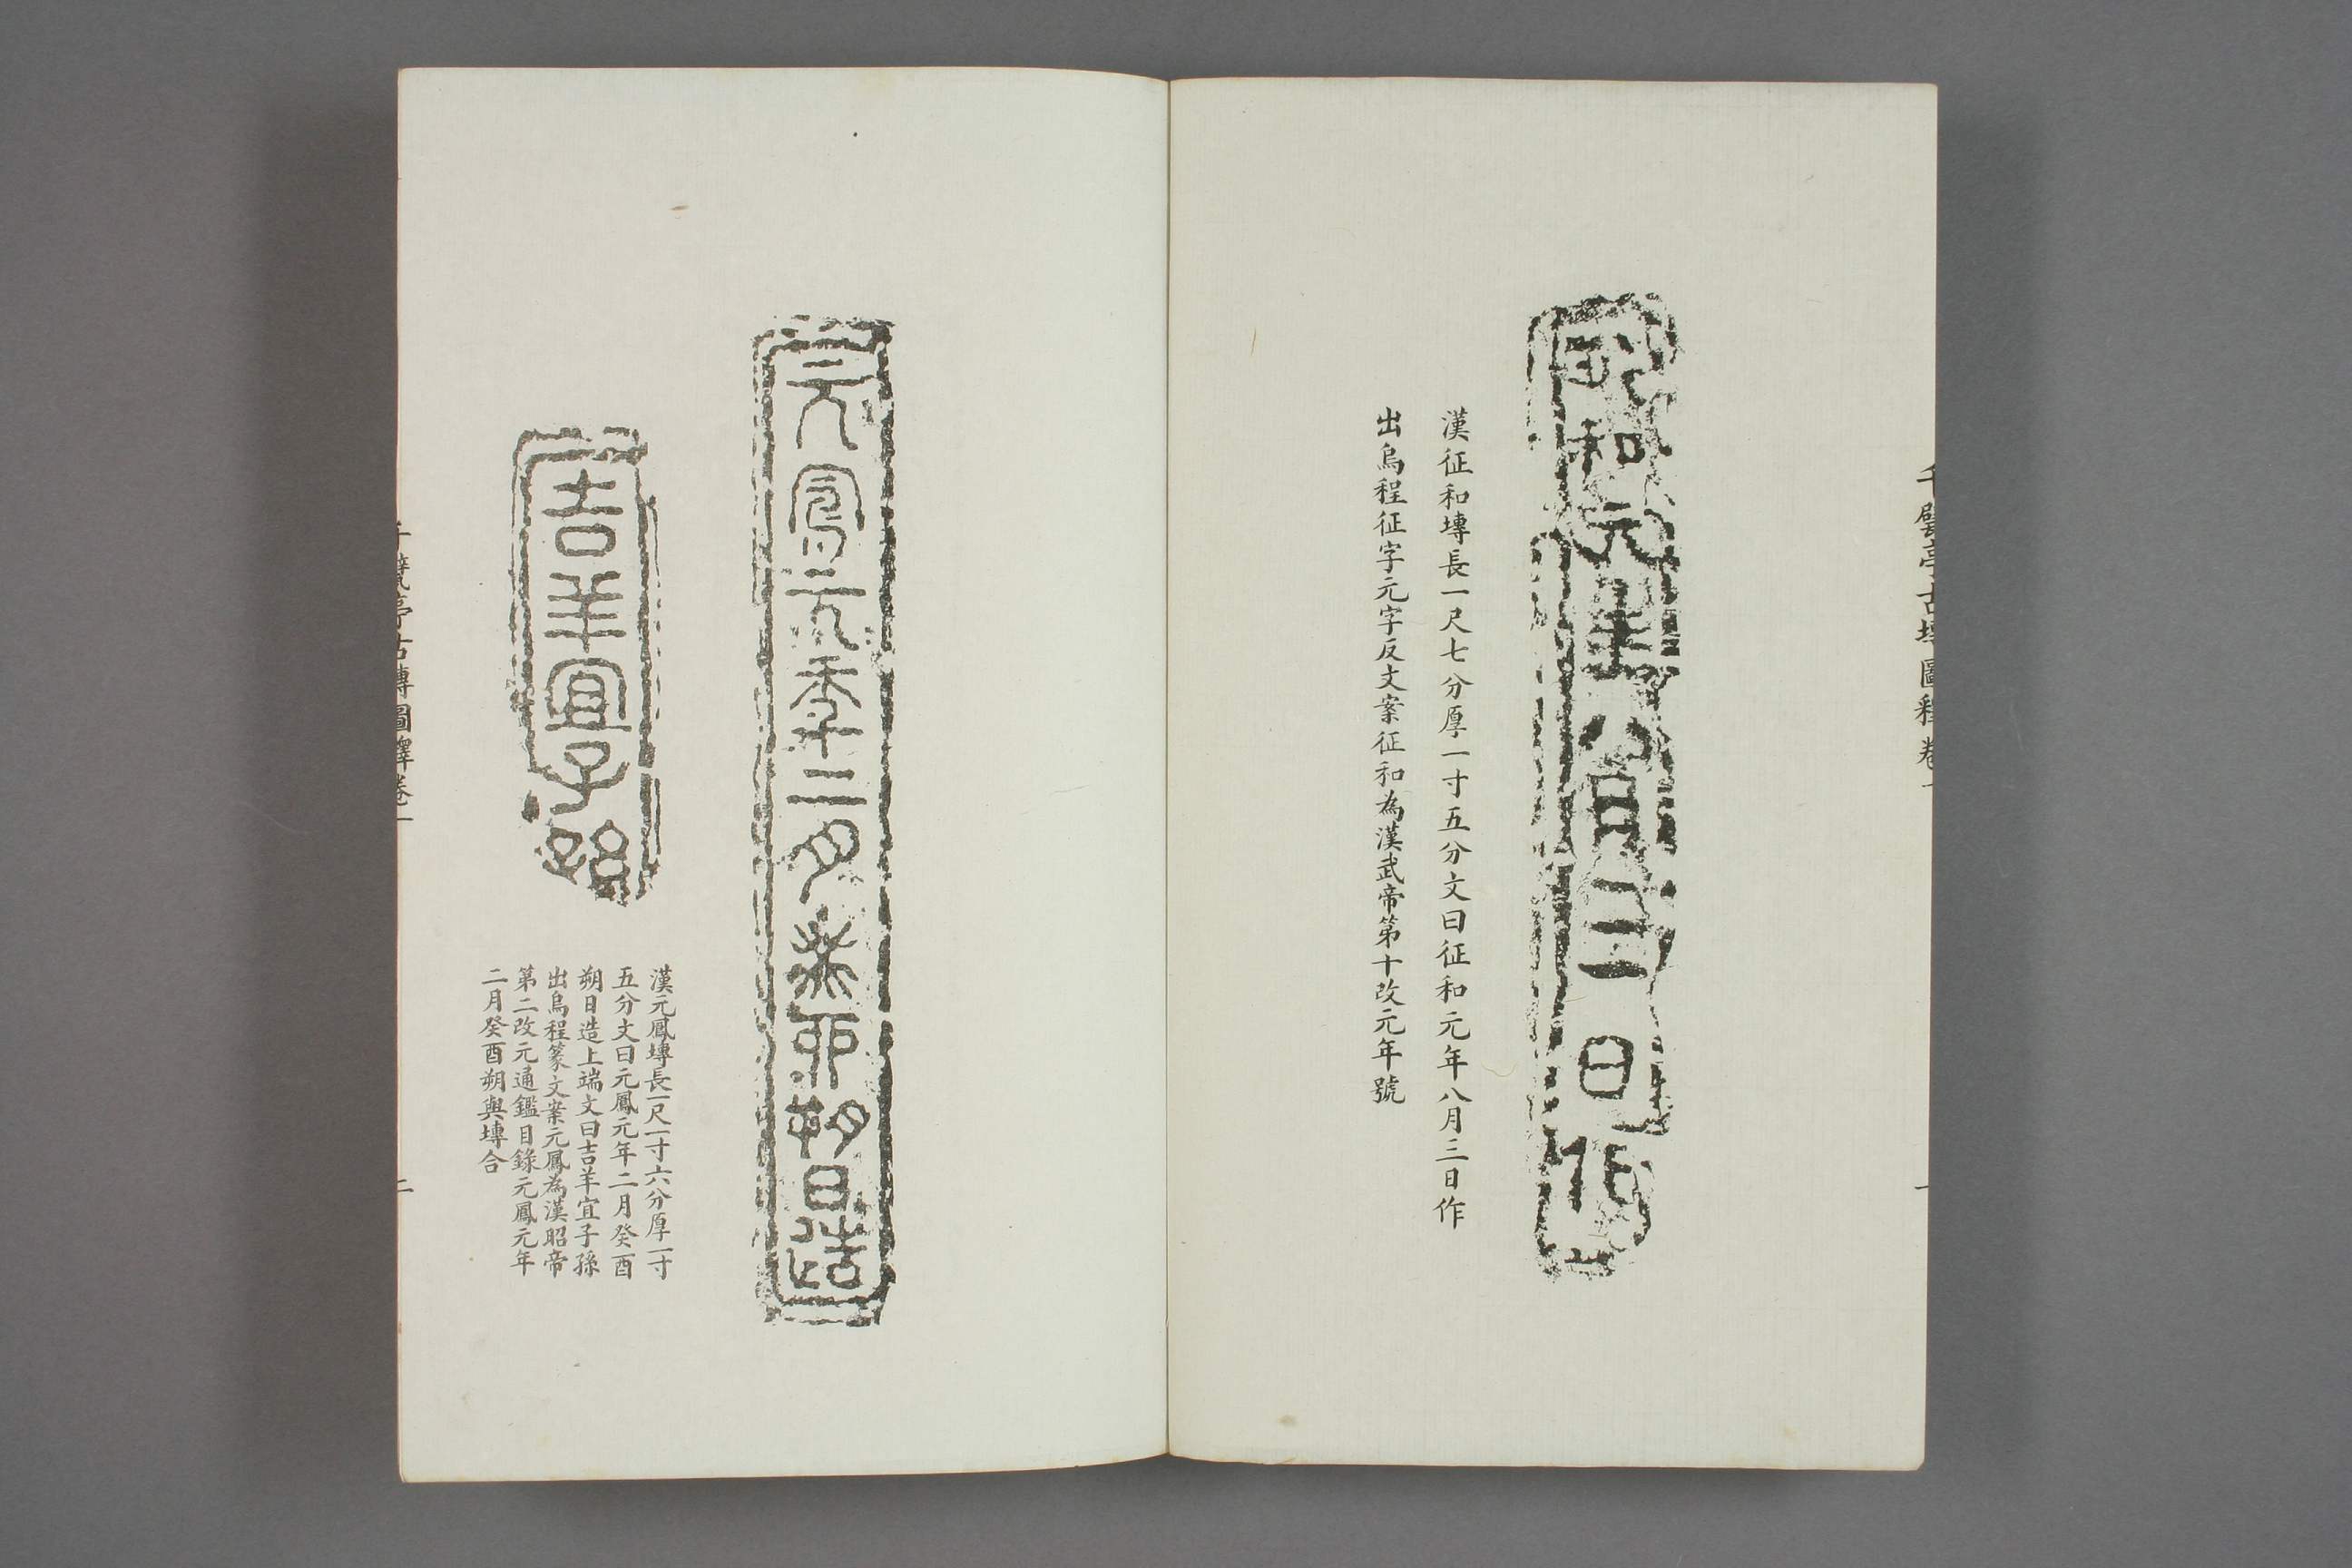 千甓亭古塼圖釋卷一
一
征和元年八月三日作
漢征和塼長一尺七分厚一寸五分文曰征和元年八月三日作
出烏程征字元字反文案征和為漢武帝第十改元年號
元鳳元年二月癸酉朔日造
吉羊宜子孫
漢元鳳塼長一尺一寸六分厚一寸
五分文曰元鳳元年二月癸酉
朔日造上端文曰吉羊宜子孫
出烏程篆文案元鳳為漢昭帝
第二改元通鑑目錄元鳳元年
二月癸酉朔與塼合
千甓亭古塼圖釋卷一
二